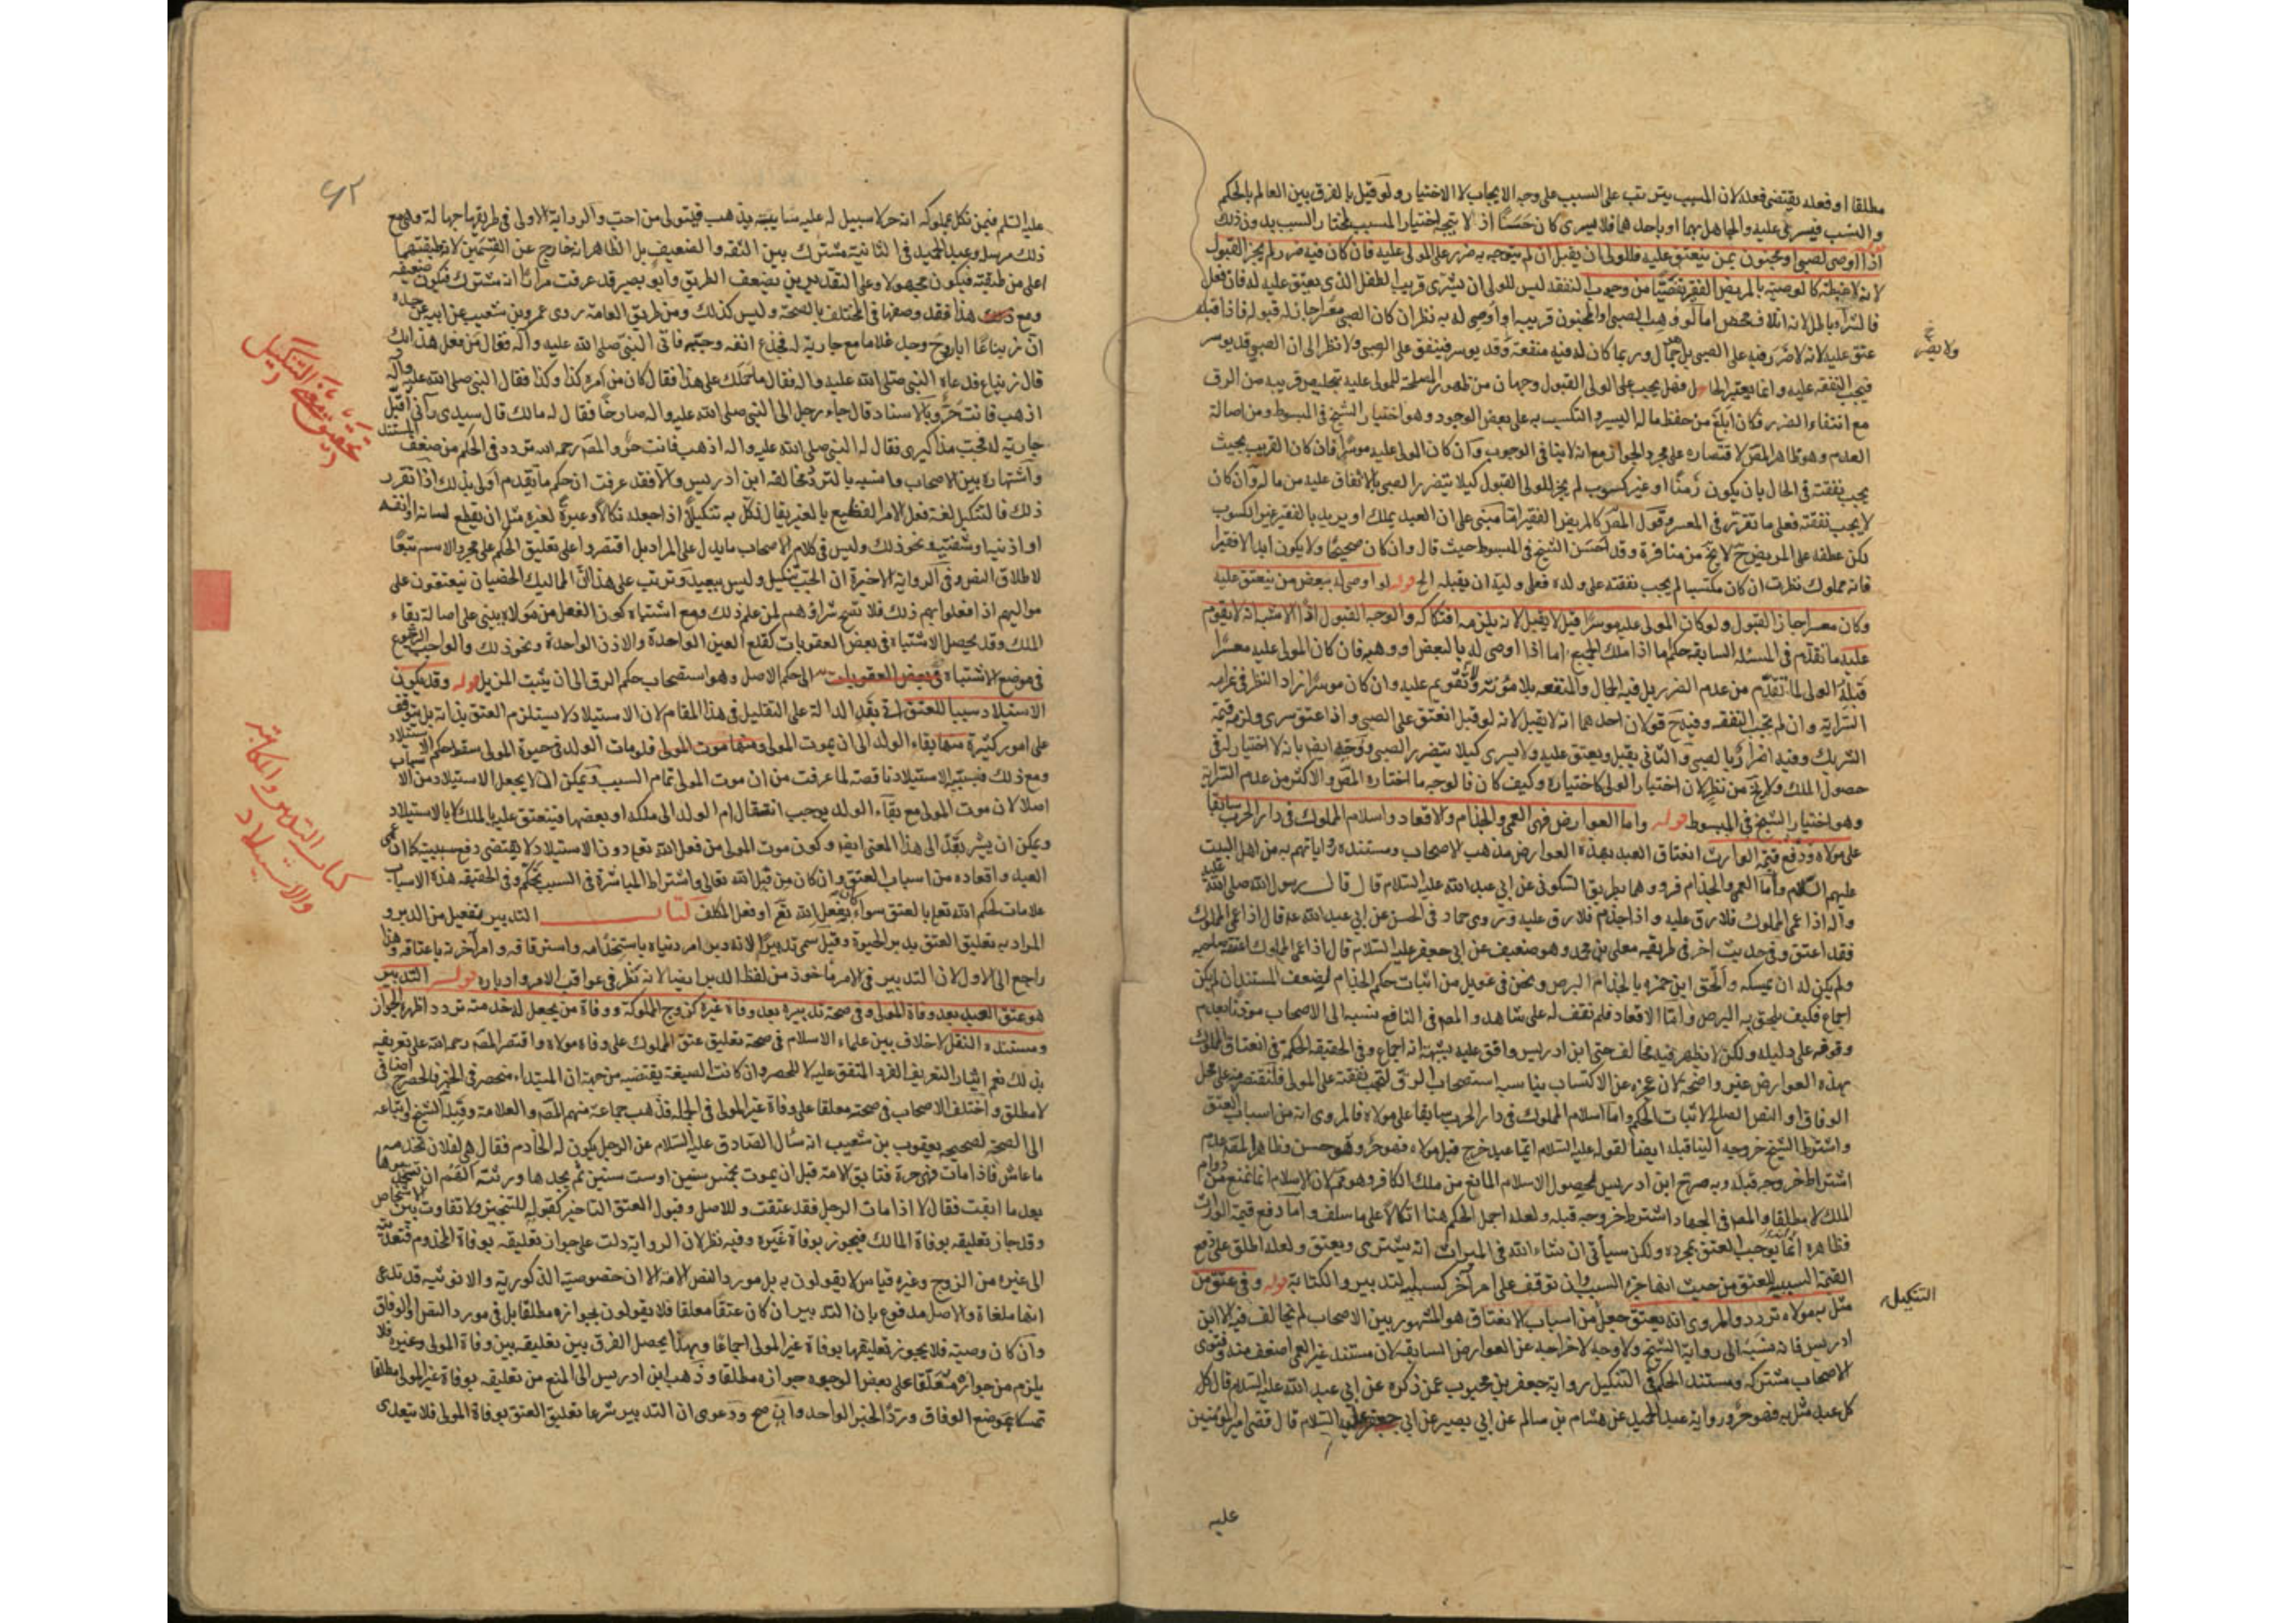 مطلقا او فعله يقتضى فعله لان المسبب يترتب على السبب على وجه الايجاب لا الاختيار ولو قيل بالفرق بين العالم بالحكم
والسبب فيسرى عليه والجاهل بهما او باحدهما فلا يسرى كان حسنا اذ لا يتجه اختيار المسبب لمختار السبب بدون ذلك
اذا اوصى لصبى او مجنون بمن ينعتق عليه فللولى ان يقبل ان لم يتوجه به ضرر على المولى عليه فان كان فيه ضرر لم يجز القبول
لانه لا غبطة كالوصية بالمريض الفقير تفصيا من وجوب النفقة ليس للولى ان يشترى قريب الطفل الذى ينعتق عليه له فان فعل
فالشراء باطل لانه اتلاف محض اما لو وهب الصبى او المجنون قريبه او اوصى له به نظر ان كان الصبى معسرا جاز له قبوله فاذا قبله
عتق عليه لانه لا ضرر فيه على الصبى بل جمال وربما كان له فيه منفعة وقد يوسر فينفق على الصبى ولا نظر الى ان الصبى قد يوسر
فتجب النفقة عليه وانما يعتبر الحال فهل يجب على الولى القبول وجهان من ظهور المصلحة للمولى عليه بتخليص قريبه من الرق
مع انتفاء الضرر فكان ابلغ من حفظ ماله اليسير والتكسب به على بعض الوجوه وهو اختيار الشيخ فى المبسوط ومن اصالة
العدم وهو ظاهر المص لاقتصاره على مجرد الجواز مع انه لا ينافى الوجوب وان كان المولى عليه موسرا فان كان القريب بحيث
يجب نفقته فى الحال بان يكون زمنا او غير كسوب لم يجز للولى القبول كيلا يتضرر الصبى بالانفاق عليه من ماله وان كان
لا يجب نفقته فعلى ما تقرر فى المعسر وقول المص كالمريض الفقير اما مبنى على ان العبد يملك او يريد بالفقير غير الكسوب
لكن عطفه على المريض ح لا يخ من منافرة وقد احسن الشيخ فى المبسوط حيث قال وان كان صحيحا ولا يكون ابدا الا فقيرا
فانه مملوك نظرت ان كان مكتسبا لم يجب نفقته على ولده فعلى وليه ان يقبله الخ قوله لو اوصى له ببعض من ينعتق عليه
وكان معسرا جاز القبول ولو كان المولى عليه موسرا قيل لا يقبل لانه يلزمه افتكاكه والوجه القبول اذ الاشبه انه لا يقوم
عليه ما تقدم فى المسئلة السابقة حكم ما اذا ملك الجميع اما اذا اوصى له بالبعض او وهبه فان كان المولى عليه معسرا
قبله الولى لما تقدم من عدم الضرر بل فيه الجمال والمنفعة بلا مؤنة ولا تقويم عليه وان كان موسرا زاد النظر فى غرامه
السراية وان لم تجب النفقة وفيه ح قولان احدهما انه لا يقبل لانه لو قبل انعتق على الصبى واذا عتق سرى ولزمه قيمة
الشريك وفيه اضرار بالصبى والثانى يقبل ويعتق عليه ولا يسرى كيلا يتضرر الصبى ووجه ايضا بانه لا اختيار له فى
حصول الملك ولا يخ من نظر لان اختيار الولى كاختياره وكيف كان فالوجه ما اختاره المص والاكثر من عدم السراية
وهو اختيار الشيخ فى المبسوط قوله واما العوارض فهى العمى والجذام والاقعاد واسلام المملوك فى دار الحرب سابقا
على مولاه ودفع قيمة الوارث انعتاق العبد بهذه العوارض مذهب الاصحاب ومستنده رواياتهم به من اهل البيت
عليهم السلام واما العمى والجذام فرووهما بطريق السكونى عن ابى عبد الله عليه السلام قال قال رسول الله صلى الله عليه
واله اذا عمى المملوك فلا رق عليه واذا جذم فلا رق عليه وروى حماد فى الحسن عن ابى عبد الله عه قال اذا عمى المملوك
فقد اعتق وفى حديث اخر فى طريقه معلى بن محمد وهو ضعيف عن ابى جعفر عليه السلام قال اذا عمى المملوك اعتقه صاحبه
ولم يكن له ان يمسكه والحق ابن حمزه بالجذام البرص ونحن فى عويل من اثبات حكم الجذام لضعف المستند ان لم يكن
اجماع فكيف يلحق به البرص واما الاقعاد فلم نقف له على شاهد والمص فى النافع نسبه الى الاصحاب موذنا بعدم
وقوفه على دليله ولكن لا يظهر فيه مخالف حتى ابن ادريس وافق عليه بشبهة انه اجماع وفى الحقيقه الحكمة فى انعتاق المملوك
بهذه العوارض غير واضحة لان عجزه عن الاكتساب يناسبه استصحاب الرق لتجب نفقته على المولى فلنقتصر منه على محل
الوفاق او النص الصالح لاثبات الحكم واما اسلام المملوك فى دار الحرب سابقا على مولاه فالمروى انه من اسباب العتق
واشترط الشيخ خروجه الينا قبله ايضا لقوله عليه السلام ايما عبد خرج قبل مولاه فهو حر وهو حسن وظاهر المص عدم
اشتراط خروجه قبله وبه صرح ابن ادريس لحصول الاسلام المانع من ملك الكافر وهو مم لان الاسلام انما يمنع من دوام
الملك لا مطلقا والمص فى الجهاد اشترط خروجه قبله ولعله اجمل الحكم هنا اتكالا على ما سلف واما دفع قيمة الوارث
فظاهره انما يوجب العتق بمجرده ولكن سيأتى ان شاء الله فى الميراث انه يشترى ويعتق ولعله اطلق على دفع
القيمة السببية للعتق من حيث انها جزء السبب وان توقف على امر آخر كسببية التدبير والكتابة قوله وفى عتق من
مثل به مولاه تردد والمروى انه يعتق جعل من اسباب الانعتاق هو المشهور بين الاصحاب لم يخالف فيه الا ابن
ادريس فانه نسبه الى رواية الشيخ ولا وجه لاخراجه عن العوارض السابقه لان مستند غير العمى اضعف منه وفتوى
الاصحاب مشتركه ومستند الحكم فى التنكيل رواية جعفر بن محبوب عمن ذكره عن ابى عبد الله عليه السلام قال كل
كل عبد مثل به فهو حر ورواية عبد الحميد عن هشام بن سالم عن ابى بصير عن ابى جعفر عليه السلام قال قضى امير المؤمنين
ولا يضر خ
التنكيل
عليه
٤٢
عليه السلم فيمن نكل بمملوكه انه حر لا سبيل له عليه سايبة يذهب فيتولى من احب والرواية الاولى فى طريقها جهالة وهى مع
ذلك مرسل وعبد الحميد فى الثانية مشترك بين الثقة والضعيف بل الظاهر انه خارج عن القسمين لان طبقتهما
اعلى من طبقته فيكون مجهولا وعلى التقديرين يضعف الطريق وابو بصير قد عرفت مرارا انه مشترك فيكون ضعيفه
ومع هذا فقد وصفها فى المختلف بالصحة وليس كذلك ومن طريق العامة روى عمرو بن شعيب عن ابيه عن جده
ان زنباعا ابا روح وجد غلاما مع جارية له فجذع انفه وجبه فاتى النبى صلى الله عليه وآله فقال من فعل هذا بك
قال زنباع فدعاه النبى صلى الله عليه واله فقال ما حملك على هذا فقال كان من امره كذا وكذا فقال النبى صلى الله عليه وآله
اذهب فانت حر وبالاسناد قال جاء رجل الى النبى صلى الله عليه واله صارخا فقال له مالك قال سيدى رآنى اقبل
جارية له فجب مذاكيرى فقال له النبى صلى الله عليه واله اذهب فانت حر والمص رحمه الله تردد فى الحكم من ضعف المستند
واشتهاره بين الاصحاب وانسبه بالتردد مخالفة ابن ادريس والا فقد عرفت ان حكم ما تقدم اولى بذلك اذا تقرر
ذلك فالتنكيل لغة فعل الامر الفظيع بالغير يقال نكل به تنكيلا اذا جعله نكالا وعبرة لغيره مثل ان يقطع لسانه او انفه
او اذنيه او شفتيه ونحو ذلك وليس فى كلام الاصحاب ما يدل على المراد بل اقتصروا على تعليق الحكم على مجرد الاسم تبعا
لاطلاق النص وفى الرواية الاخيرة ان الجب تنكيل وليس ببعيد وترتب على هذا ان المماليك الخصيان ينعتقون على
مواليهم اذا فعلوا بهم ذلك فلا تصح شراؤهم لمن علم ذلك ومع اشتباه كون الفعل من مولاه يبنى على اصالة بقاء
الملك وقد يحصل الاشتباه فى بعض العقوبات كقلع العين الواحدة والاذن الواحدة ونحو ذلك والواجب الرجوع
فى موضع الاشتباه فى بعض العقوبات الى حكم الاصل وهو استصحاب حكم الرق الى ان يثبت المزيل قوله وقد يكون
الاستيلاد سببا للعتق اتى بقد الدالة على التقليل فى هذا المقام لان الاستيلاد لا يستلزم العتق بذاته بل يتوقف
على امور كثيرة منها بقاء الولد الى ان يموت المولى ومنها موت المولى فلو مات الولد فى حيوة المولى سقط حكم الاستيلاد
ومع ذلك فسببية الاستيلاد ناقصة لما عرفت من ان موت المولى تمام السبب ويمكن ان لا يجعل الاستيلاد من الاسباب
اصلا لان موت المولى مع بقاء الولد يوجب انتقال ام الولد الى ملكه او بعضها فينعتق عليه بالملك لا بالاستيلاد
ويمكن ان يشير بقد الى هذا المعنى ايضا وكون موت المولى من فعل الله تعالى دون الاستيلاد لا يقتضى دفع سببيته كما ان عمى
العبد واقعاده من اسباب العتق وان كان من قبل الله تعالى واشتراط المباشرة فى السبب تحكم وفى الحقيقه هذه الاسباب
علامات لحكم الله تعالى بالعتق سواء كان بفعل الله تع او بفعل المكلف كتاب التدبير تفعيل من الدبر و
المراد به تعليق العتق بدبر الحيوة وقيل سمى تدبيرا لانه دبر امر دنياه باستخدامه واسترقاقه وامر آخرته باعتاقه وهذا
راجع الى الاول لان التدبير فى الامر ماخوذ من لفظ الدبر ايضا لانه نظر فى عواقب الامر وادباره قوله التدبير
هو عتق العبد بعد وفاة المولى وفى صحة تدبيره بعد وفاة غيره كزوج المملوكة ووفاة من يجعل له خدمته تردد اظهره الجواز
ومستنده النقل لا خلاف بين علماء الاسلام فى صحة تعليق عتق المملوك على وفاة مولاه واقتصر المص رحمه الله على تعريفه
بذلك نعم ايثار التعريف الفرد المتفق عليه لا للحصر وان كانت الصيغة يقتضيه من جهة ان المبتداء منحصر فى الخبر فالحصر اضافى
لا مطلق واختلف الاصحاب فى صحته معلقا على وفاة غير المولى فى الجملة فذهب جماعة منهم المص والعلامة وقبله الشيخ واتباعه
الى الصحة لصحيحه يعقوب بن شعيب انه سأل الصادق عليه السلام عن الرجل يكون له الخادم فقال هى لفلان تخدمه
ما عاش فاذا مات فهى حرة فتابق الامة قبل ان يموت بخمس سنين او ست سنين ثم يجدها ورثته الهم ان يستخدموها
بعد ما ابقت فقال لا اذا مات الرجل فقد عتقت وللاصل وقبول العتق التاخير كقبوله للتنجيز ولا تفاوت بين الاشخاص
وقد جاز تعليقه بوفاة المالك فيجوز بوفاة غيره وفيه نظر لان الرواية دلت على جواز تعليقه بوفاة المخدوم فتعديته
الى غيره من الزوج وغيره قياس لا يقولون به بل مورد النص الامة الا ان خصوصية الذكورية والانوثية قد تدعى
انها ملغاة والاصل مدفوع بان التدبير ان كان عتقا معلقا فلا يقولون بجوازه مطلقا بل فى مورد النص او الوفاق
وان كان وصية فلا يجوز تعليقها بوفاة غير المولى اجماعا وبهذا يحصل الفرق بين تعليقه بين وفاة المولى وغيره فلا
يلزم من جوازه معلقا على بعض الوجوه جوازه مطلقا وذهب ابن ادريس الى المنع من تعليقه بوفاة غير المولى مطلقا
تمسكا بموضع الوفاق ورد الخبر الواحد وان صح ودعوى ان التدبير شرعا تعليق العتق بوفاة المولى فلا يتعدى
تحقيق معنى التنكيل
كتاب التدبير والمكاتبة
والاستيلاد